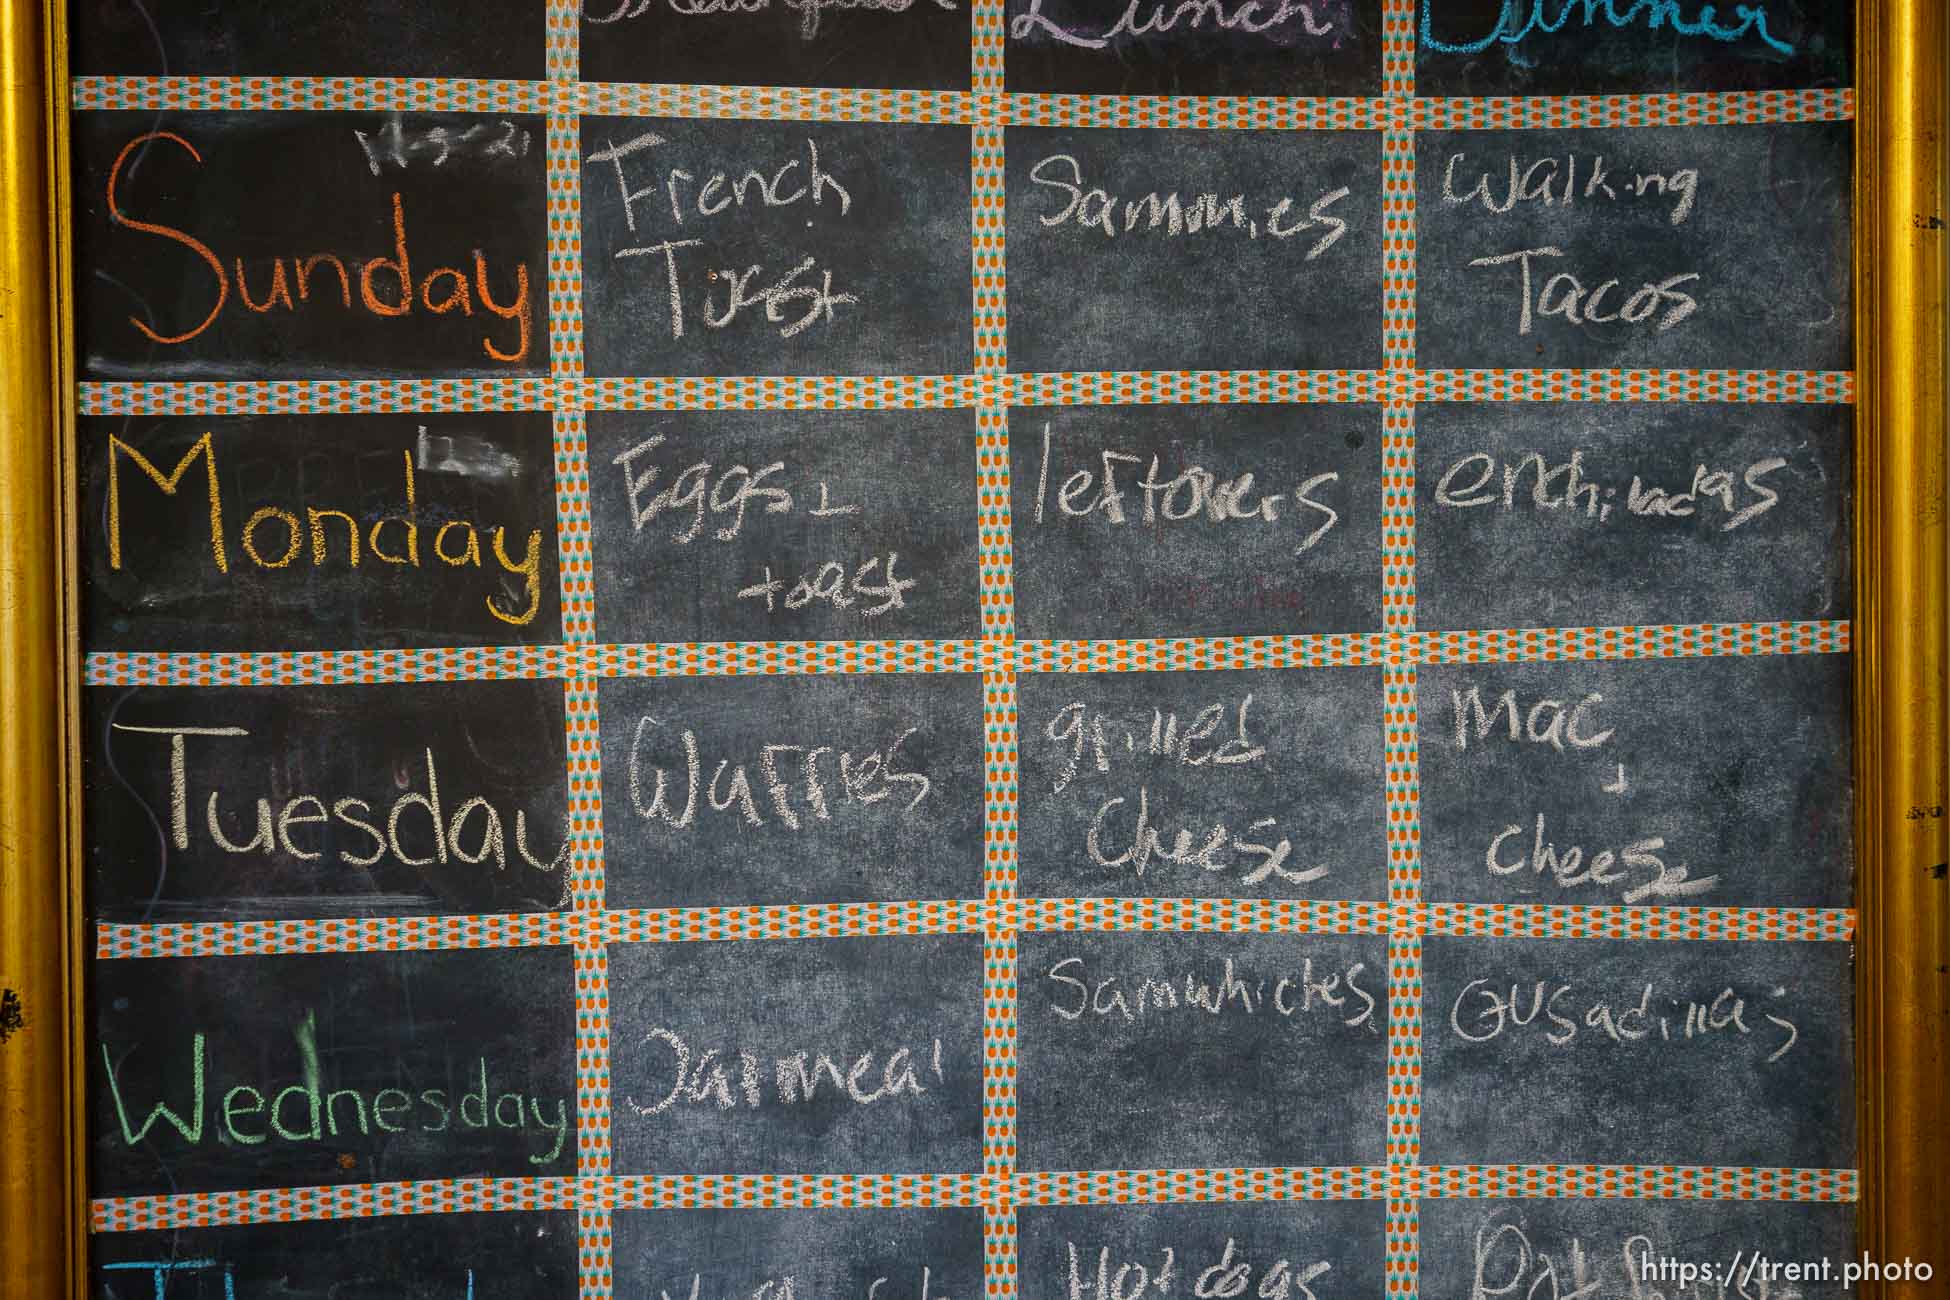 Breakfast Lunch Dinner
Sunday
French
Toast
Sammies
Walking
Tacos
Monday
Eggs +
toast
leftovers
enchiladas
Tuesday
Waffles
grilled
Cheese
Mac
+
Cheese
Wednesday
Oatmeal
Samwhiches
QUSadillas
Hot dogs
https://trent.photo